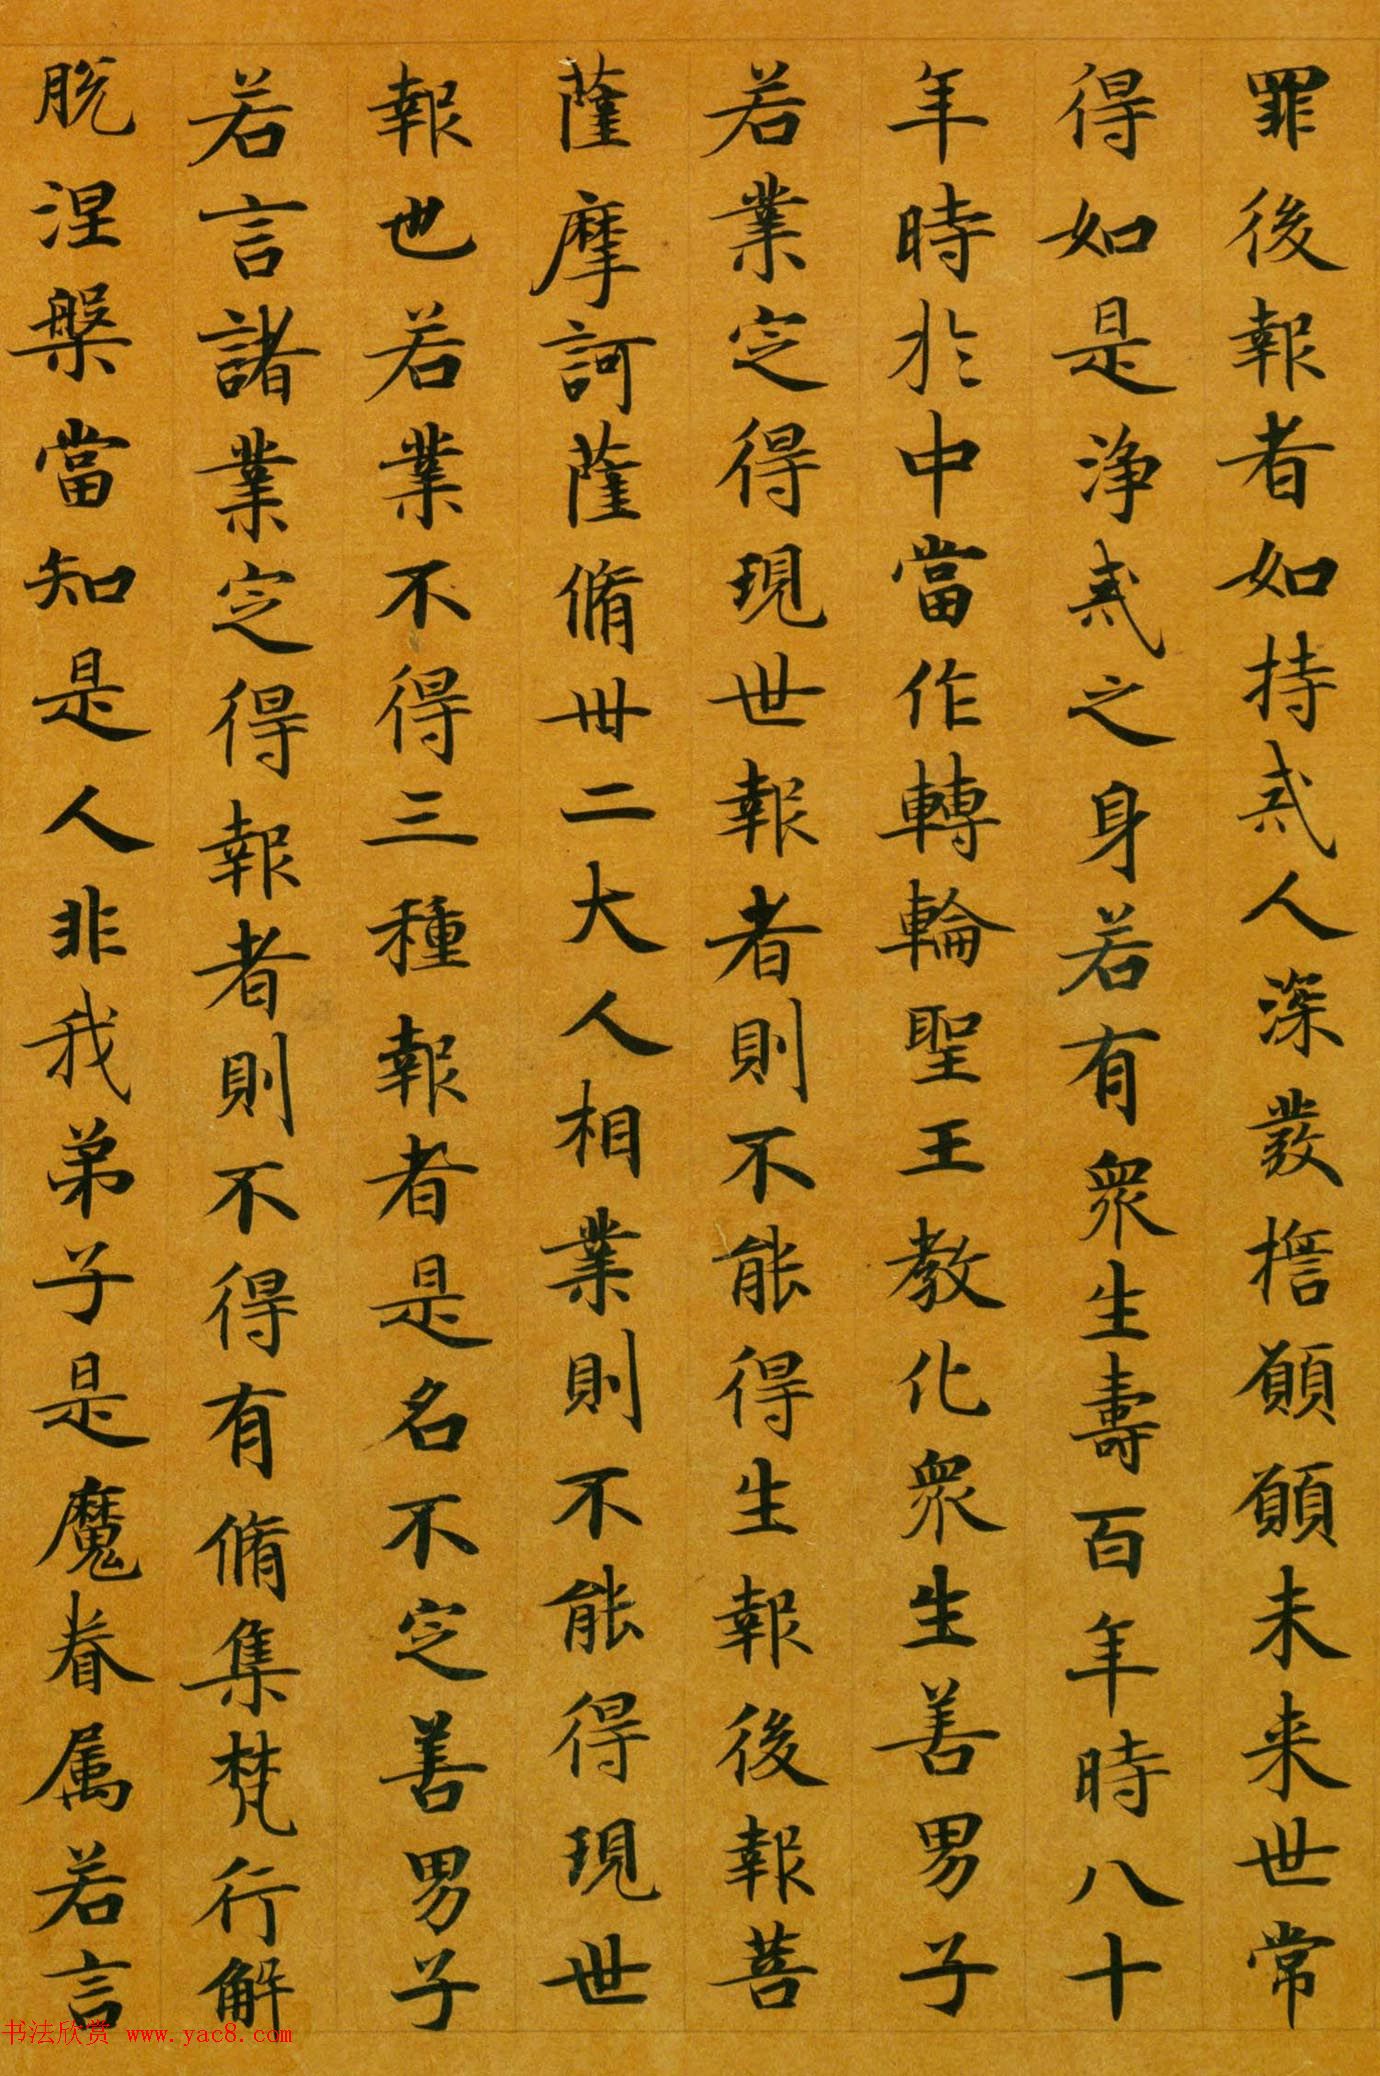 罪後報者如持戒人深發擔願願未来世常
得如是淨戒之身若有衆生壽百年時八十
年時於中當作轉輪聖王教化衆生善男子
若業定得現世報者則不能得生報後報菩
薩摩訶薩脩卅二大人相業則不能得現世
報也若業不得三種報者是名不定善男子
若言諸業定得報者則不得有脩集梵行解
脱涅槃當知是人非我弟子是魔眷属若言
书法欣赏 www.yac8.com